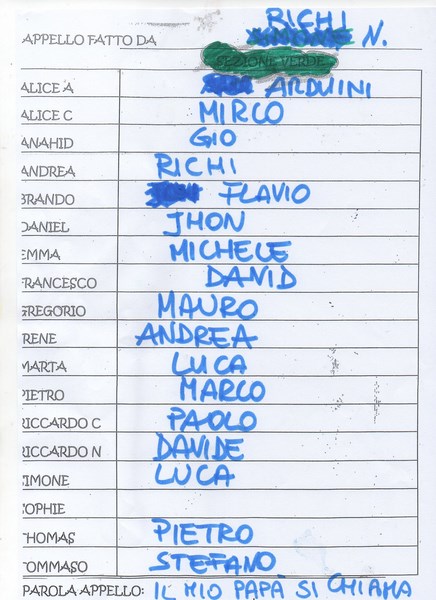 RICHI
APPELLO FATTO DA N.
SEZIONE VERDE
ALICE A ARDUINI
ALICE C MIRCO
ANAHID GIO
ANDREA RICHI
BRANDO FLAVIO
DANIEL JHON
EMMA MICHELE
FRANCESCO DAVID
GREGORIO MAURO
IRENE ANDREA
MARTA LUCA
PIETRO MARCO
RICCARDO C PAOLO
RICCARDO N DAVIDE
SIMONE LUCA
SOPHIE
THOMAS PIETRO
TOMMASO STEFANO
PAROLA APPELLO: IL MIO PAPÀ SI CHIAMA